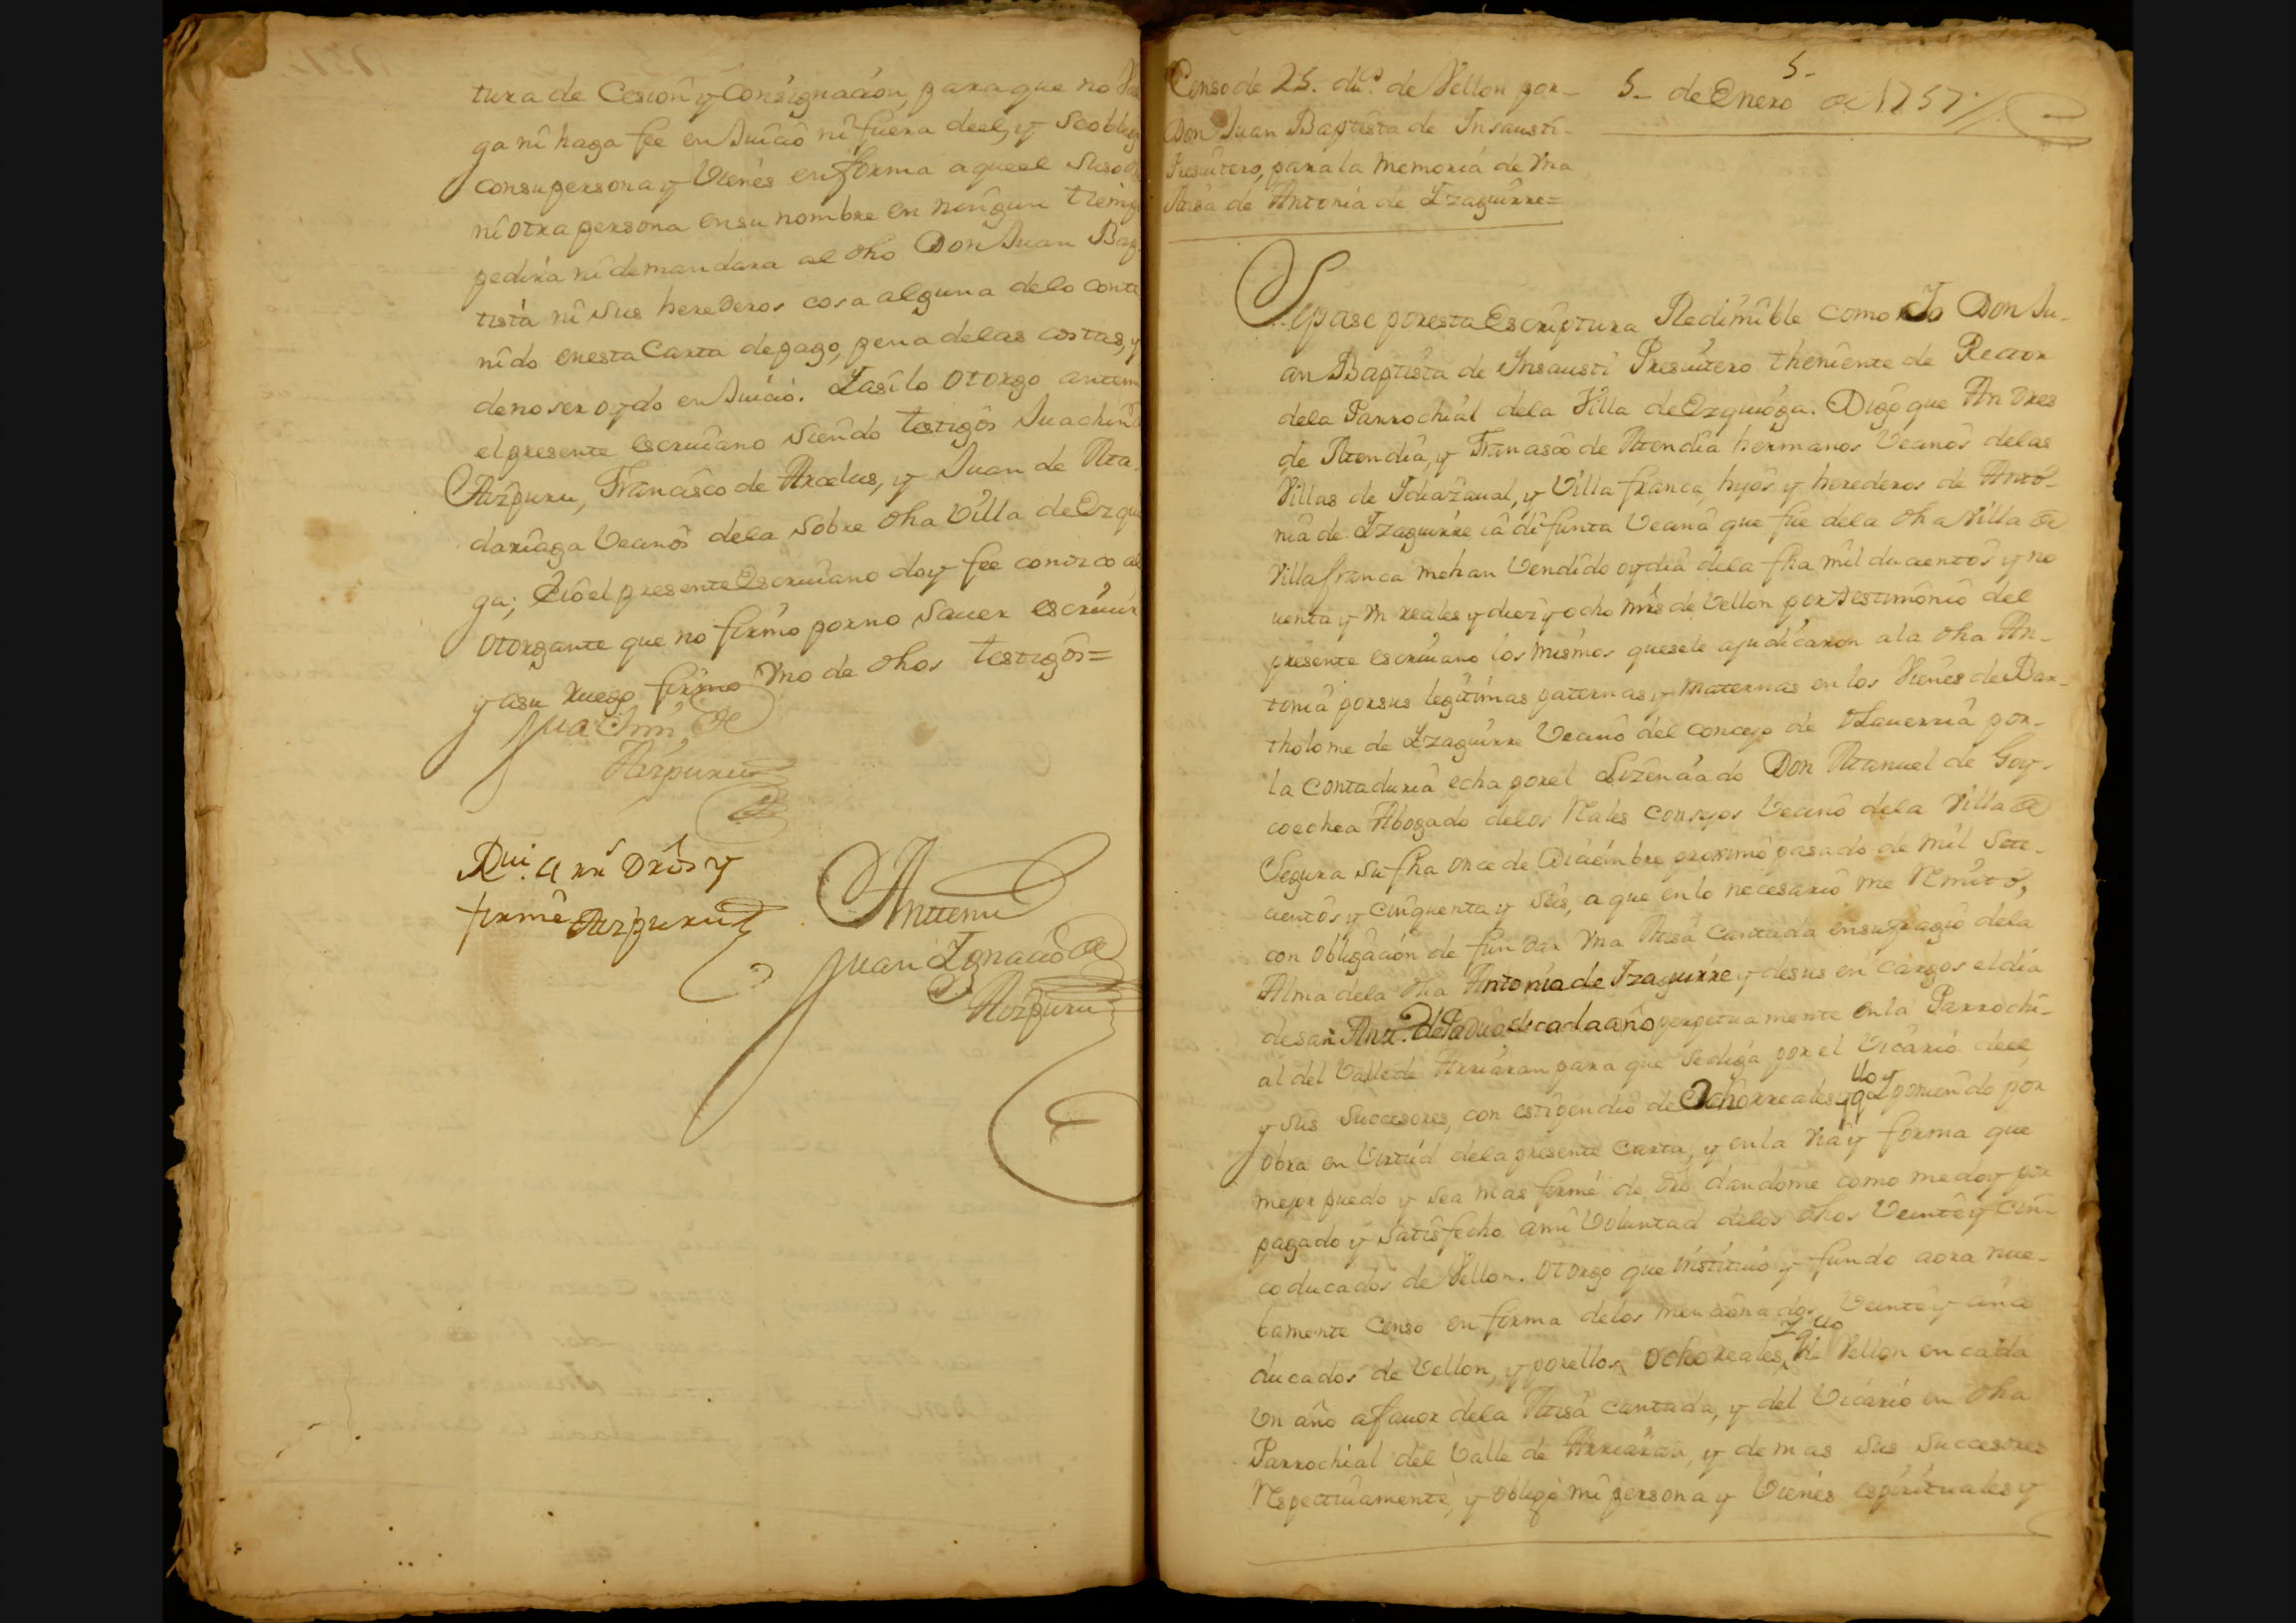 tura de Cesion y Consignacion, para que no Val
ga ni haga fee en Juicio ni fuera de el, y se oblig
con su persona y Vienes en forma a que el Susod
ni otra persona en su nombre en ningun Tiemp
pedira ni demandara al dho Don Juan Bap
tista ni sus herederos cosa alguna de lo conte
nido en esta Carta de pago, pena de las costas, y
de no ser oydo en Juicio. Y asi lo otorgo antem
el presente escriuano siendo testigos Juachin
Aizpuru, Francisco de Arcelus, y Juan de Ma
dariaga Vecinos de la sobre dha Villa de Ezqui
ga; E io el presente Escriuano doy fee conozco al
otorgante que no firmo por no Sauer escriuir
y a su ruego firmo Vno de dhos testigos=
Juachin de
Aizpuru
firme Aizpuru
Anttemi
Juan Ignacio de
Aizpuru
5-
Censo de 25. du.s de Vellon por-
Don Juan Baptista de Insausti-
Presuitero, para la Memoria de Vna
Misa de Antonia de Yzaguirre=
5- de Enero de 1757
Sepase por esta Escriptura Redimible como Io Don Ju-
an Baptista de Insausti Presuitero theniente de Rector
de la Parrochial de la Villa de Ezquioga. Digo que Andres
de Mendia, y Francisco de Mendia hermanos Vecinos de las
Villas de Ydiazaual, y Villafranca, hijos y herederos de Anto-
nia de Yzaguirre ia difunta Vecina que fue de la dha Villa de
Villafranca me han Vendido oy dia de la fha mil ducientos y no
uenta y Vn reales y diez y ocho mrs de Vellon por testimonio del
presente escriuano los mismos que se le ajudicaron a la dha An-
tonia por sus legitimas paternas y maternas en los Vienes de Bar-
tholome de Yzaguirre Vecino del concejo de Olauerria por-
la Contaduria echa por el Lizenciado Don Manuel de Goy-
coechea Abogado de los Rales Consejos Vecino de la Villa de
Segura su fha once de Diciembre proximo pasado de mil Sete-
cientos y cinquenta y seis, a que en lo necesario me Remito,
con obligacion de fundar Vna Misa Cantada en sufragio de la
Alma de la dha Antonia de Yzaguirre y de sus en cargos el dia
de san Antt.o de Padua de cada año perpetuamente en la Parrochi-
al del Valle de Arriaran para que se diga por el Vicario de el
y sus Succesores, con estipendio de Ocho rreales y q.llo y poniendo por
obra en Virtud de la presente Carta, y en la Via y forma que
mejor puedo y sea mas firme de dro dandome como me doy por
pagado y satisfecho a mi Voluntad de los dhos Veinte y cin-
co ducados de Vellon. Otorgo que instituio y fundo aora nue-
bamente Censo en forma de los mencionados Veinte y cinco
ducados de Vellon, y por ellos ocho reales y q.llo de Vellon en cada
Vn año a fauor de la Misa cantada, y del Vicario en dha
Parrochial del Valle de Arriaran, y demas sus Succesores
Respectiuamente, y obligo mi persona y Vienes espirituales y